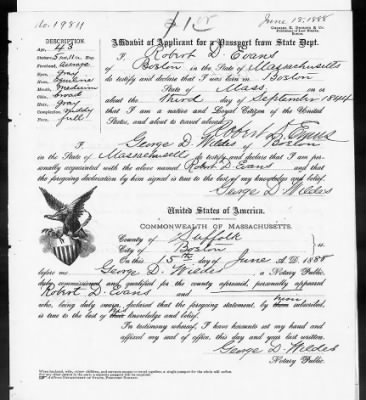 No. 19811
$1.00
June 18, 1888
DESCRIPTION.
Age, 43
Stature, 5 ft 11 in Eng.
Forehead, average
Eyes, gray
Nose,
Mouth, medium
Chin, broad
Hair, gray
Complexion, ruddy
Face, full
Affidavit of Applicant for a Passport from State Dept.
I, Robert D. Evans
of Boston in the State of Massachusetts
do testify and declare that I was born in Boston
State of Mass. on or
about the Third day of September 1844
that I am a native and Loyal Citizen of the United
States, and about to travel abroad.
Robert D. Evans
I, George D. Wildes of Boston
in the State of Massachusetts do testify and declare that I am per-
sonally acquainted with the above named Robert D. Evans and that
the foregoing declaration by him signed is true to the best of my knowledge and belief.
George D. Wildes
United States of America.
COMMONWEALTH OF MASSACHUSETTS.
County of Suffolk
City of Boston } ss.
On this 15th day of June A.D. 1888
before me George D. Wildes, a Notary Public,
duly commissioned and qualified for the county aforesaid, personally appeared
Robert D. Evans and
who, being duly sworn, declared that the foregoing statement, by him subscribed,
is true to the best of his knowledge and belief.
In testimony whereof, I have hereunto set my hand and
affixed my seal of office, this day and year last written.
George D. Wildes
Notary Public.